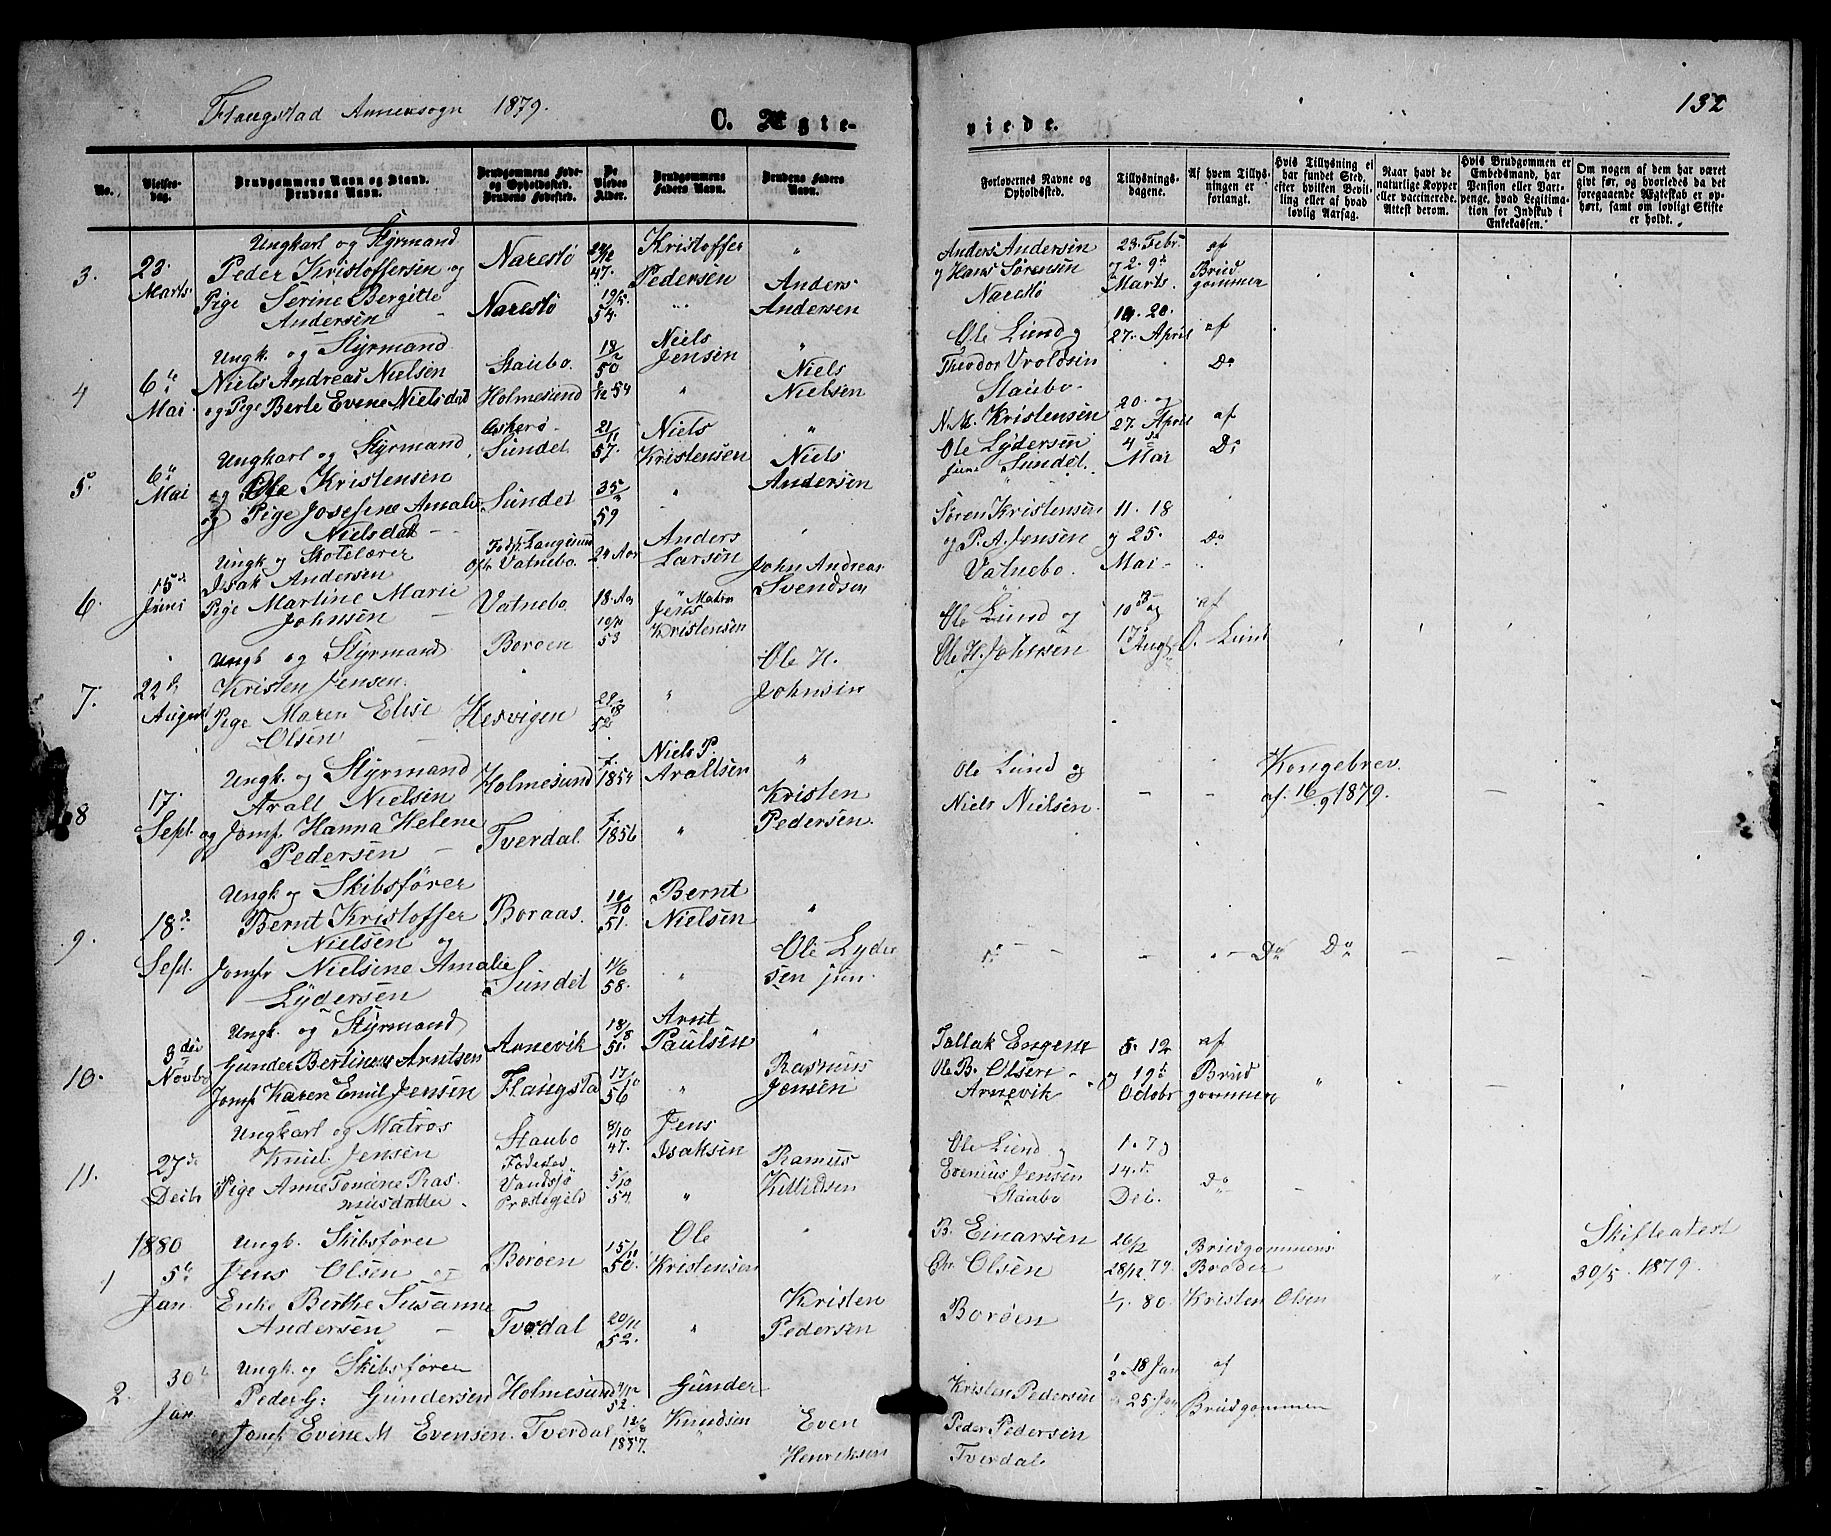 Flaugstad Annexsogn 1879.
C. Ægte-
viede.
132
No.
Vielses-
dag.
Brudgommens Navn og Stand.
Brudens Navn.
Brudgommens Føde-
og Opholdssted.
Brudens Fødested.
De
Viedes
Alder.
Brudgommens
Faders Navn.
Brudens Faders
Navn.
Forlovernes Navne og
Opholdssted.
Tillysnings-
dagene.
Af hvem Tillys-
ningen er
forlangt.
Hvis Tillysning ei
har fundet Sted,
efter hvilken Bevil-
ling eller af hvad
lovlig Aarsag.
Naar havt de
naturlige Kopper
eller vaccinerede.
Attest derom.
Hvis Brudgommen er
Embedsmand, har
Pension eller Vart-
penge, hvad Legitima-
tion for Indskud i
Enkekassen.
Om nogen af dem har været
givt før, og hvorledes da det
foregaaende Ægteskab er op-
hørt, samt om lovligt Skifte
er holdt.
3.
23.
Marts
Ungkarl og Styrmand
Peder Kristoffersen og
Pige Serine Bergitte
Andersen
Narestø
Narestø
47.
19/5
54.
Kristoffer
Pedersen
Anders
Andersen
Anders Andersen
og Hans Sørensen
Narestø
23. Febr.
og 2. 9de
Marts
af
Brud
gommen
4
6te
Mai
Ungk. og Styrmand
Niels Andreas Nielsen
og Pige Berte Evene Nielsdat
Staubo.
Holmesund
18/2
50
54
Niels
Jensen
Niels
Nielsen
Ole Lund og
Theodor Vroldsen
Staubo.
20.
27. April
af
Do
5.
6te
Mai
Ungkarl og Styrmand
Ole Kristensen
og Pige Josefine Amalie
Nielsdatt
Askerø
Sundet
Sundet
21/11
57.
59
Niels
Kristensen
Niels
Andersen
N. M. Kristensen
Ole Lydersen
Sundet.
20. og
27. April
4de
Mai
af
Do
6.
15de
Juni
Ungk og
Isak Andersen
Pige Martine Marie
Johnsen
Født Langesund
Vatnebo.
Vatnebo
24 Aar
18. Aar
Anders
Larsen
John Andreas
Svendsen
Søren Kristensen
og P. A. Jensen
Vatnebo.
11. 18
og 25.
Mai
Do
7.
22de
August
Ungk og Styrmand
Kristen Jensen.
Pige Maren Elise
Olsen
Borøen
Hesvigen
53
52
Matros
Jens
Kristensen
Ole H.
Johnsen
Ole Lund og
Ole H. Johnsen
10de og
17de
Augt
af
O. Lund
8
17.
Sept.
Ungk. og Styrmand
Aralt Nielsen
og Jomf. Hanna Helene
Pedersen
Holmesund
Tverdal.
f.
1854
f.
1856
Niels P.
Araltsen
Kristen
Pedersen.
Ole Lund og
Niels Nielsen.
Kongebrev
af 16/9 1879.
9.
18de
Sept.
Ungk og Skibsfører
Bernt Kristoffer
Nielsen og
Jomfr Nielsine Amalie
Lydersen
Boraas.
Sundet
10/10
51.
58.
Bernt
Nielsen
Ole Lyder
sen jun.
Do Do
10.
3die
Novbr
Ungk. og Styrmand
Gunder Bertinius Arntsen
Jomf Karen Emil Jensen
Arnevik
Flaugsta
18/8
51.
17/10
56
Arnt
Paulsen
Rasmus
Jensen
Tallak Engene
Ole B. Olsen
Arnevik
5. 12
og 19de
Octobr
af
Brud
gommen
11.
27de
Decbr
Ungkarl og Matros
Knud Jensen
Pige Anne Tomine Ras
musdatter
Staubo
Fødested
Vandsjø
Præstegjeld
8/10
47.
5/10
54
Jens
Isaksen
Ramus
Kittilsen
Ole Lund og
Evenius Jensen
Staubo
1. 7 og
14de
Dec.
Do
1
1880
5te
Jan
Ungk. Skibsfører
Jens Olsen og
Enke Berthe Susanne
Andersen
Borøen
Tverdal
50.
20/11
52.
Ole
Kristensen
Kristen
Pedersen
B. Einarsen
Chr Olsen
Borøen
26/12
28/12 79.
1/1 80.
Brudgommens
Broder
Kristen Olsen
Skifteatest
30/5 1879.
2.
30te
Jan
Ungk. og Skibsfører
Peder G: Gundersen
og Jomf Evine M Evensen.
Holmesund
Tverdal
52.
1857.
Gunder
Knudsen
Even
Henriksen
Kristen Pedersen
Peder Pedersen
Tverdal
18 Jan
25. Jan
af
Brudgommen